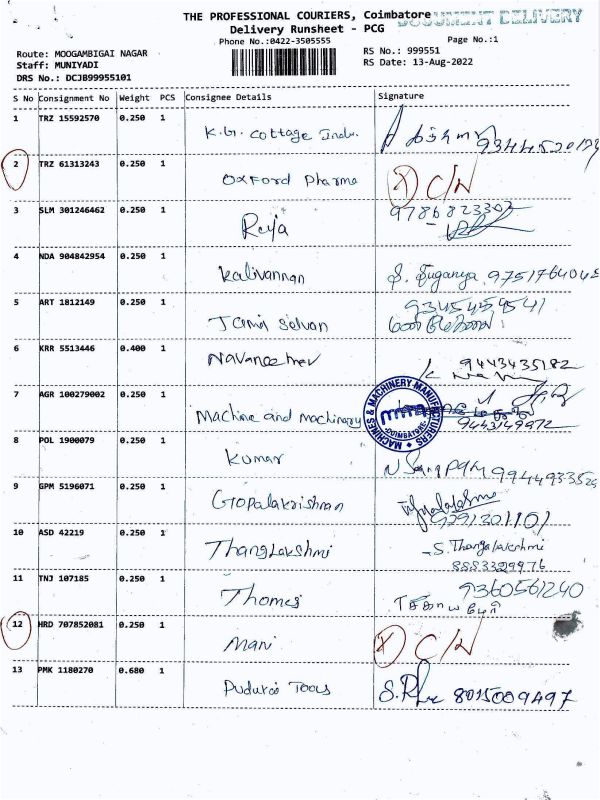 THE PROFESSIONAL COURIERS, Coimbatore
DOCUMENT DELIVERY
Delivery Runsheet - PCG
Phone No.:0422-3505555
Page No.:1
Route: MOOGAMBIGAI NAGAR
RS No.: 999551
Staff: MUNIYADI
RS Date: 13-Aug-2022
DRS No.: DCJB99955101
S No Consignment No Weight PCS Consignee Details Signature
1 TRZ 15592570 0.250 1 K.G. Cottage Indu.
2 TRZ 61313243 0.250 1 Oxford Pharma (X) C/N
3 SLM 301246462 0.250 1 Raja 9786823303
4 NDA 904842954 0.250 1 Kalivannan S. Suganya 975176404
5 ART 1812149 0.250 1 Tamil Selvan 9345459541
6 KRR 5513446 0.400 1 Navaneethav 9443435182
7 AGR 100279002 0.250 1 Machine and machinery 9443149972
MACHINES & MACHINERY MANUFACTURERS
mmm
COIMBATORE
8 POL 1900079 0.250 1 Kumar 994493352
9 GPM 5196071 0.250 1 Gopalakrishnan Vijayalakshmi
9291301101
10 ASD 42219 0.250 1 Thanglakshmi S. Thangalakshmi
8883329976
11 TNJ 107185 0.250 1 Thomas 9360561240
12 HRD 707852081 0.250 1 Mani (X) C/N
13 PMK 1180270 0.680 1 Pudurai Tools 8015009497